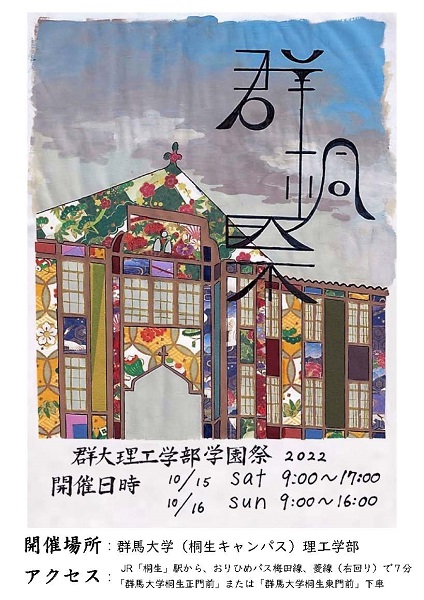 群桐祭
群大理工学部学園祭 2022
開催日時 10/15 sat 9:00～17:00
10/16 sun 9:00～16:00
開催場所：群馬大学（桐生キャンパス）理工学部
アクセス：JR「桐生」駅から、おりひめバス梅田線、菱線（右回り）で7分
「群馬大学桐生正門前」または「群馬大学桐生東門前」下車